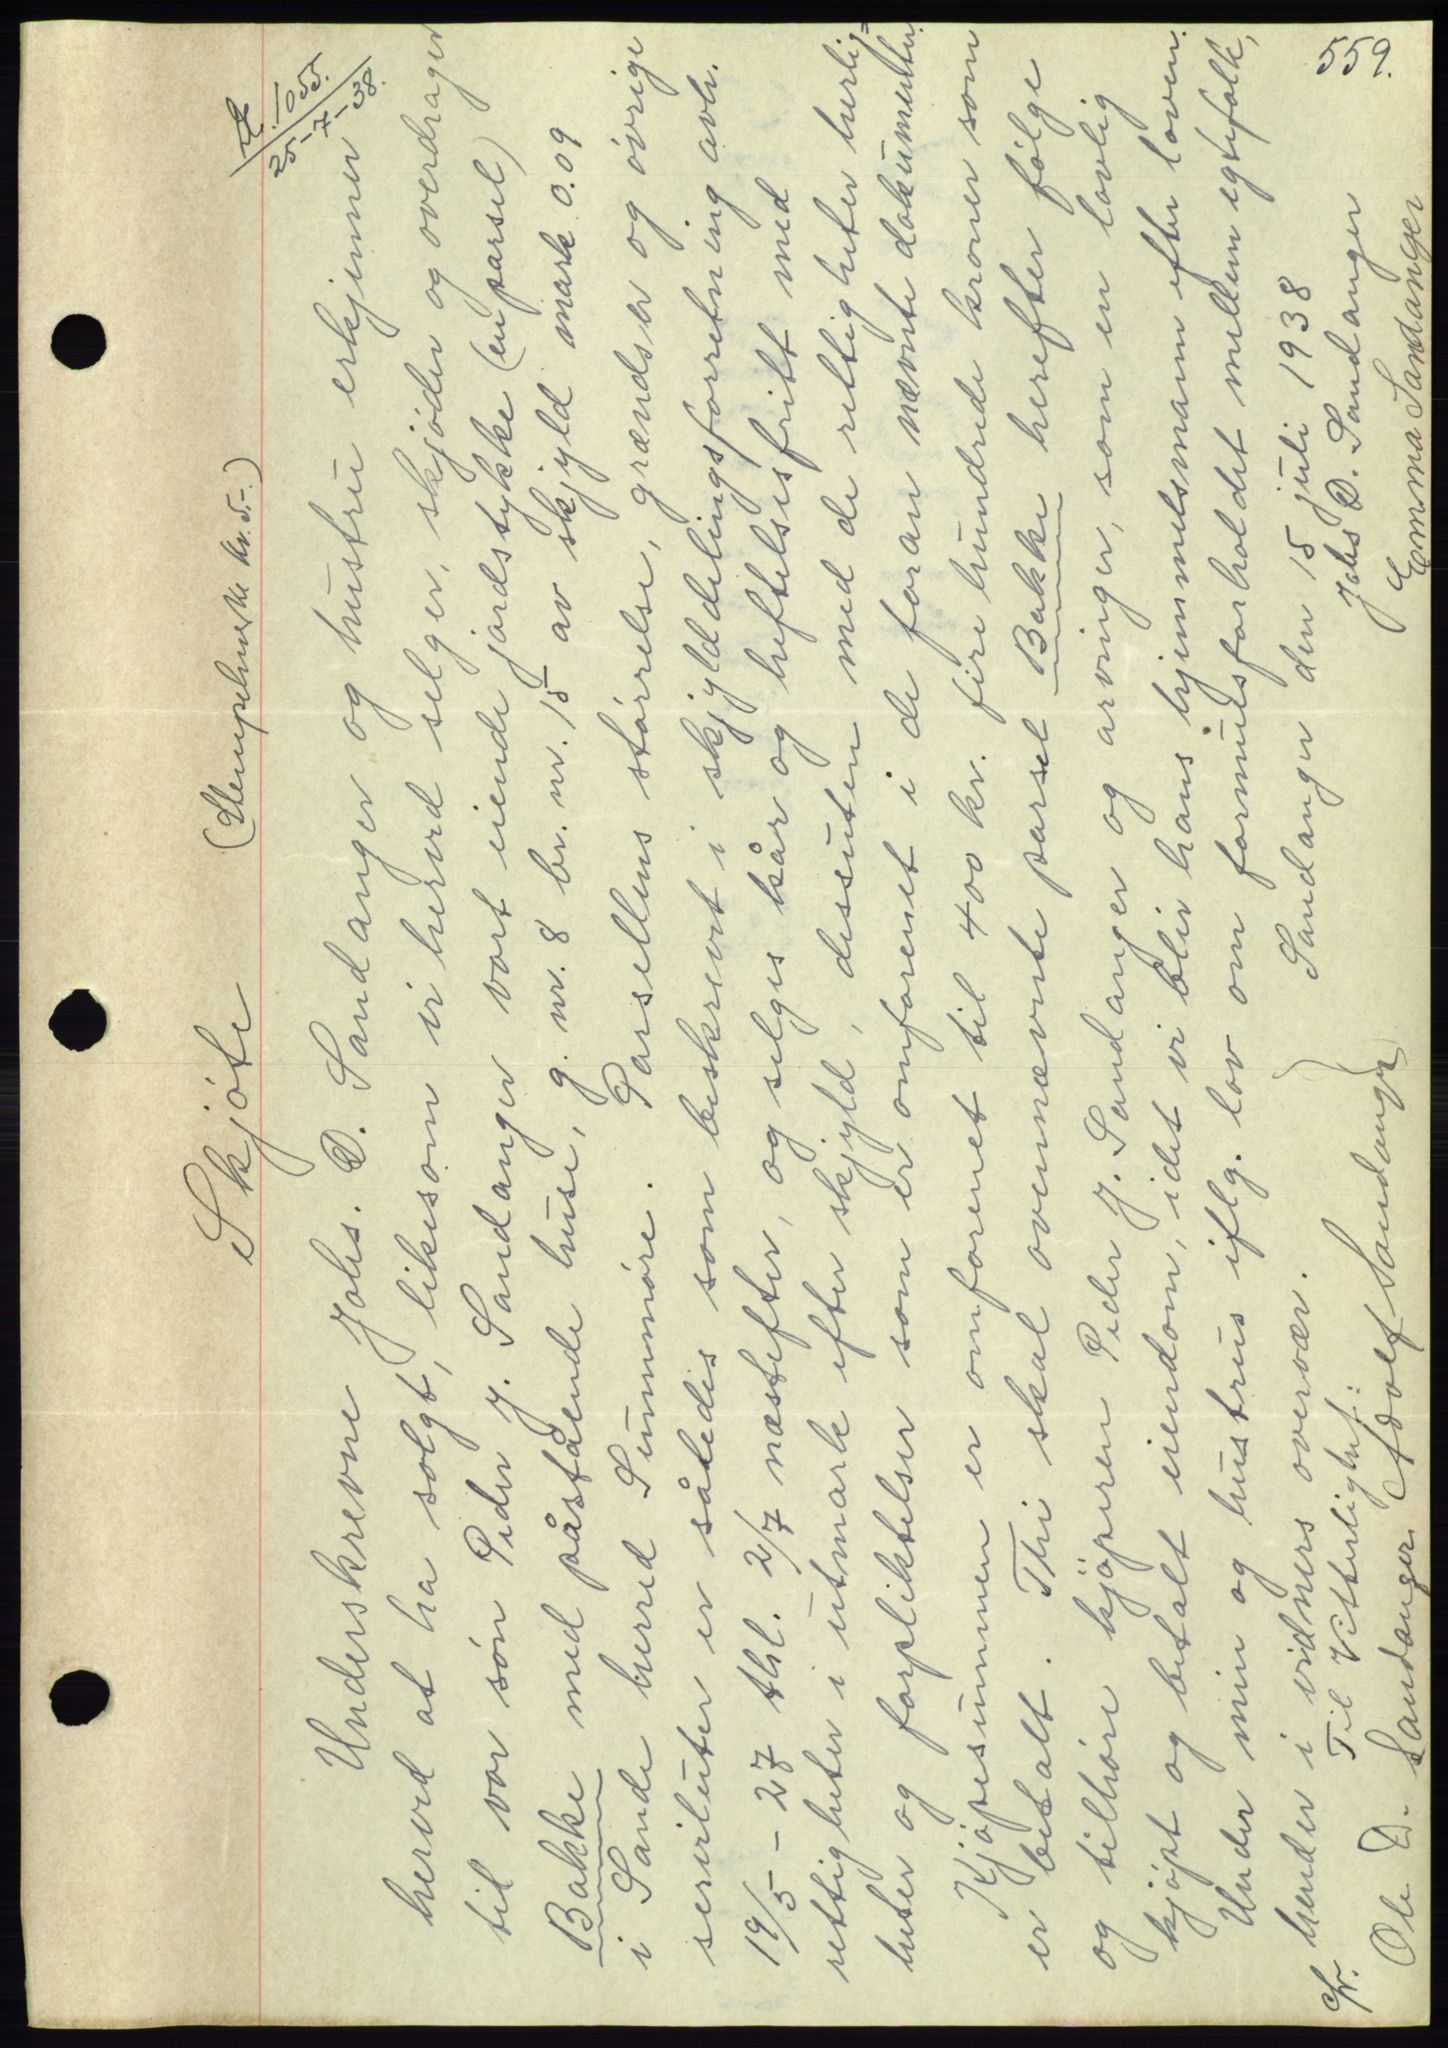 Skjöte (Stempelmerke kr. 5.-)
1055.
25-7-38.
Underskrevne Johs. D. Sandanger og hustru erkjenner
herved at ha solgt, likesom vi herved selger, skjöder og overdrager
til vor sön Peder J. Sandanger vort eiende jordstykke (en parsel)
Bakke med påstående huse, g. nr. 8 br. nr. 15 av skjyld mark 0.09
i Sande herred Sunnmöre. Parsellens störrelse, grændser og övrige
servituter er således som beskrevt i skjylddelingsforretning avh.
19/5 - 27 thl. 2/7 næstefter, og selges kår og heftelsesfritt med
rettigheter i utmark efter skjyld, dessuten med de rettigheter herlig-
heter og forpliktelser som er omforenet i de foran nævnte dokumenter.
Kjöpesummen er omforenet til 400 kr. fire hundrede kroner som
er betalt. Thi skal ovennævnte parsel Bakke herefter fölge
og tilhöre kjöperen Peder J. Sandanger og arvinger, som en lovlig
kjöpt og betalt eiendom, idet vi blir hans hjemmelsmann efter loven.
Under min og hustrus iflg. lov om formuesforholdet mellem egtefolk,
hender i vidners overvær. Sandanger den 15 juli 1938
Til Vitterlighet: Johs D. Sandanger
Ole D. Sandanger Adolf Sandanger Emma Sandanger
559.